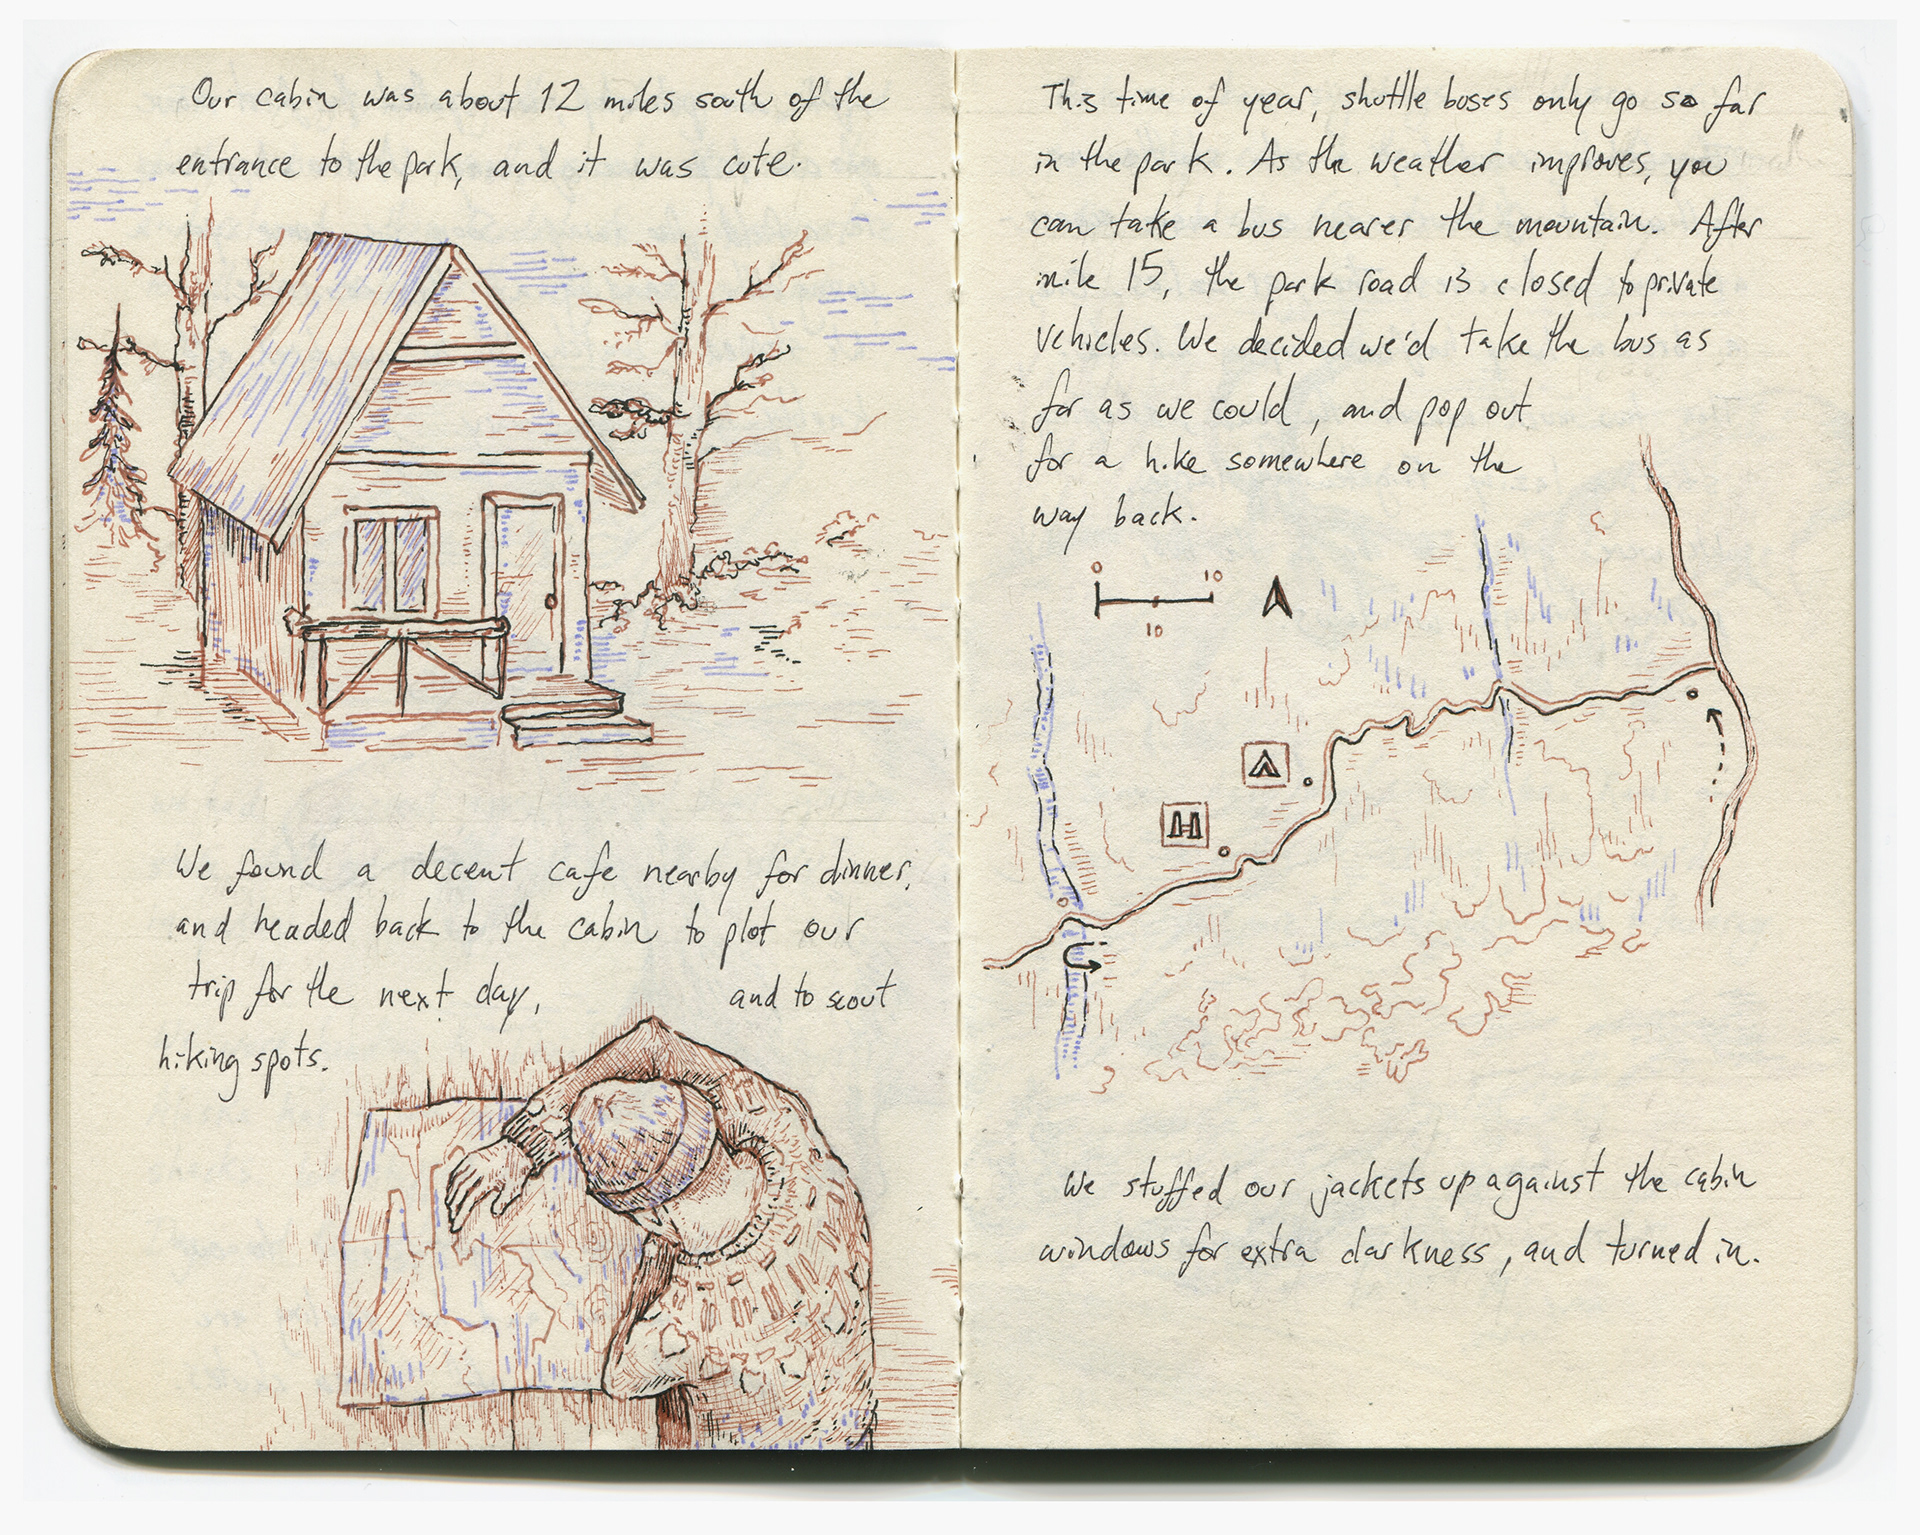 Our cabin was about 12 miles south of the
entrance to the park, and it was cute.
We found a decent cafe nearby for dinner,
and headed back to the cabin to plot our
trip for the next day, and to scout
hiking spots.
This time of year, shuttle buses only go so far
in the park. As the weather improves, you
can take a bus nearer the mountain. After
mile 15, the park road is closed to private
vehicles. We decided we'd take the bus as
far as we could, and pop out
for a hike somewhere on the
way back.
0 10
10
We stuffed our jackets up against the cabin
windows for extra darkness, and turned in.